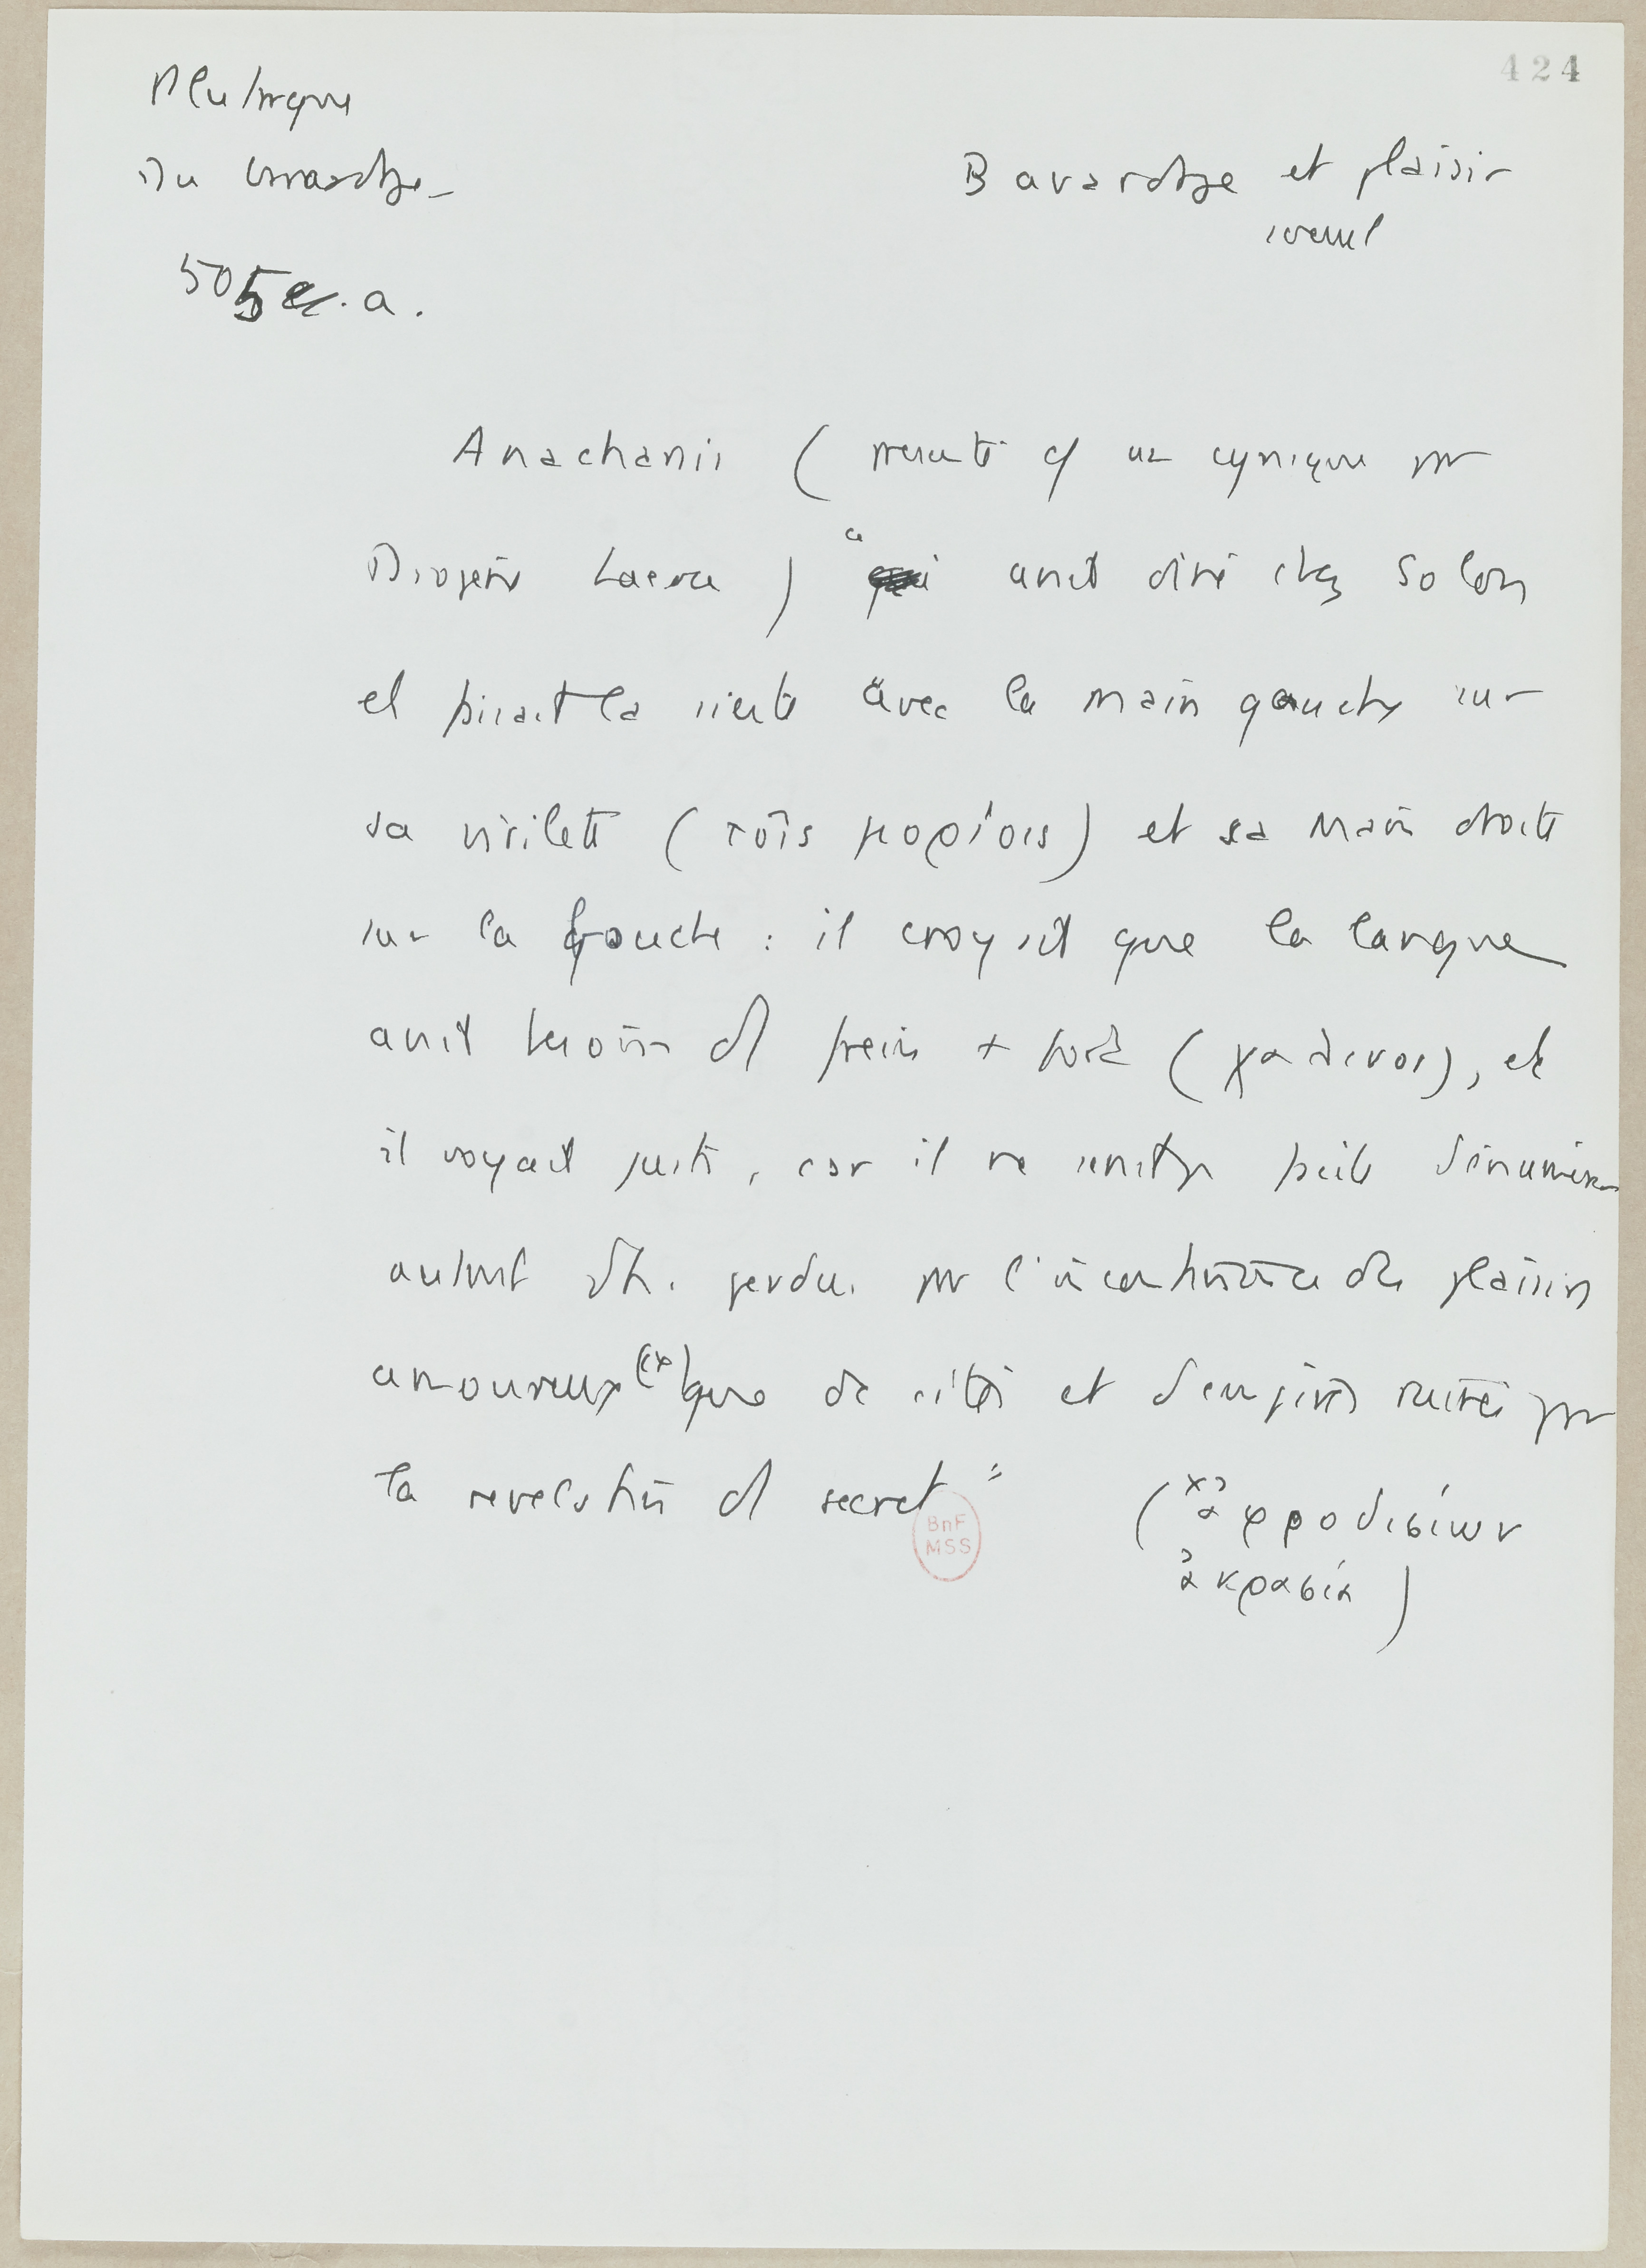 424
Plutarque
Du bavardage
505 a.
Bavardage et plaisir
sexuel
Anacharsis ( présenté c/ un cynique par
Diogène Laerce ) " avait dîné chez Solon
et faisait la sieste avec la main gauche sur
sa virilité ( τοῖς μορίοις ) et sa main droite
sur la bouche : il croyait que la langue
avait besoin d frein + fort ( χαλινος ), et
il voyait juste, car il ne serait pas facile d'énumérer
autant d'h. perdus par l'incontinence des plaisirs
amoureux (x) que de cités et d'empires ruinés par
la révélation d secret "
( x ἀφροδισίων
ἀκρασία )
BnF
MSS